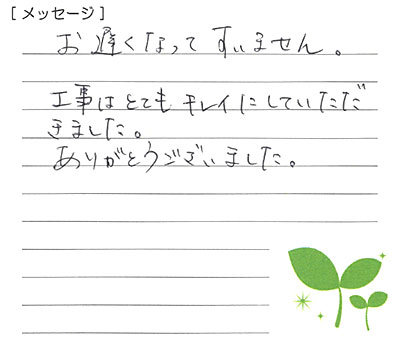 [メッセージ]
お遅くなって すいません。
工事はとてもキレイにしていただ
きました。
ありがとうございました。